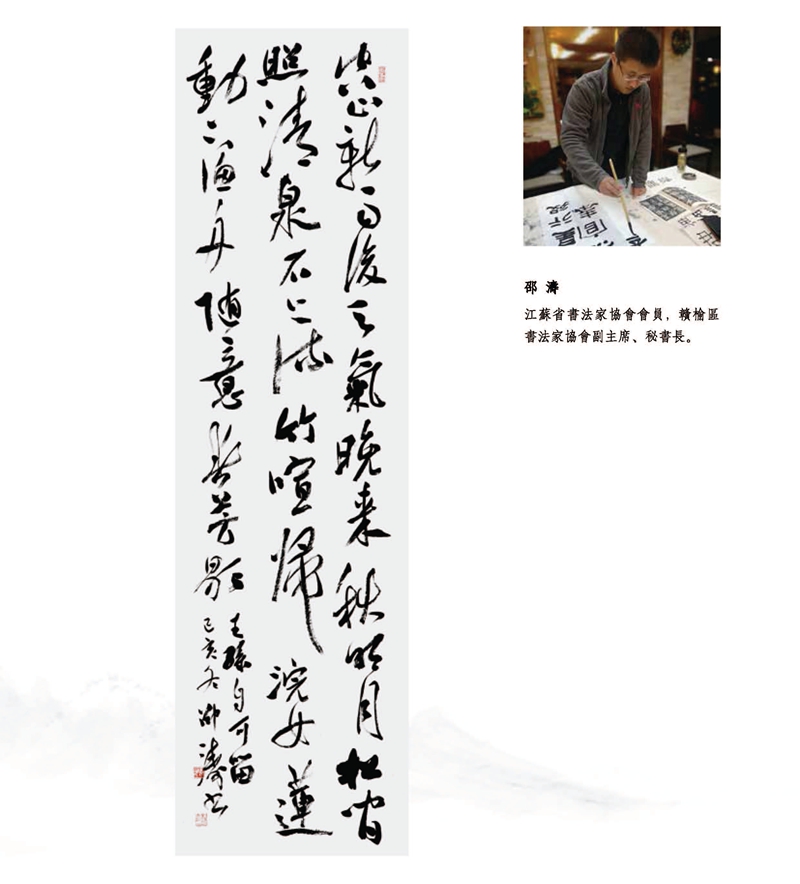 空山新雨後天氣晚來秋明月松間
照清泉石上流竹喧歸浣女蓮
動下漁舟隨意春芳歇
王孫自可留
己亥冬邵濤書
邵 濤
江蘇省書法家協會會員，贛榆區
書法家協會副主席、秘書長。